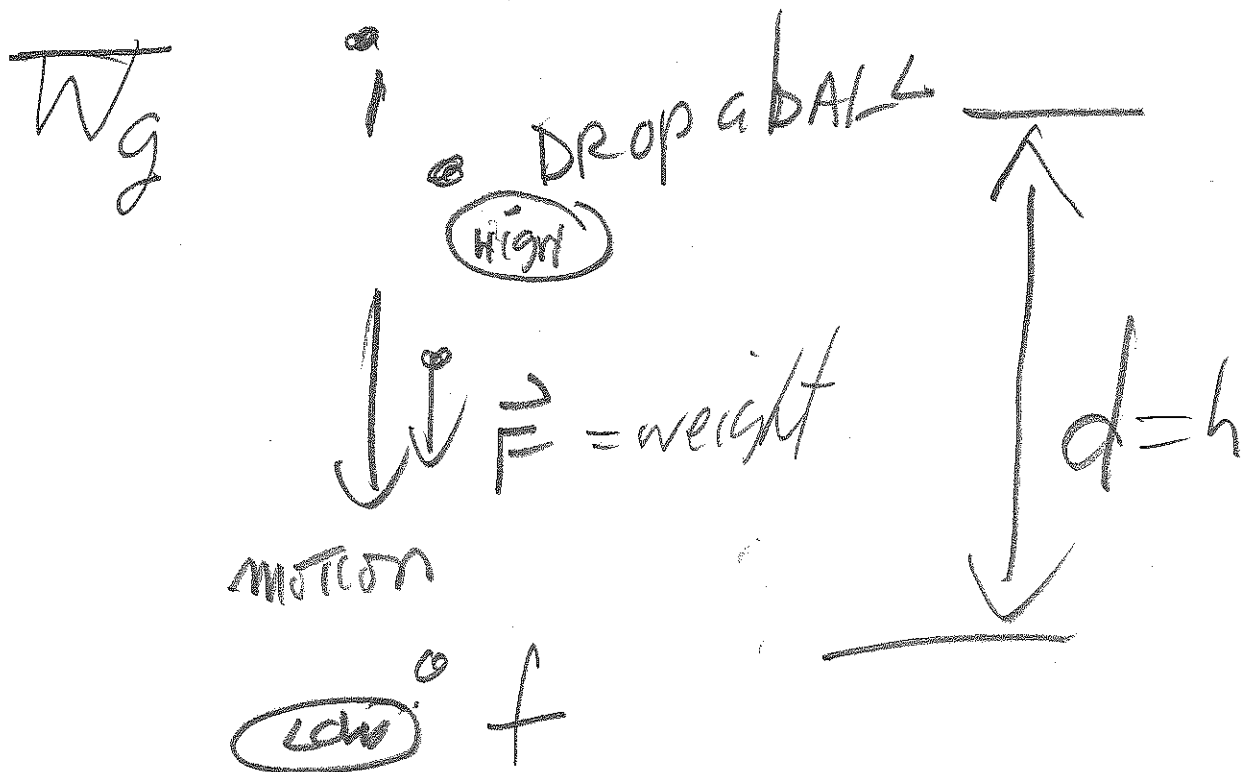 Wg i
DROP a bALL
HIGH
F⃗ = weight
d=h
MOTION
LOW f